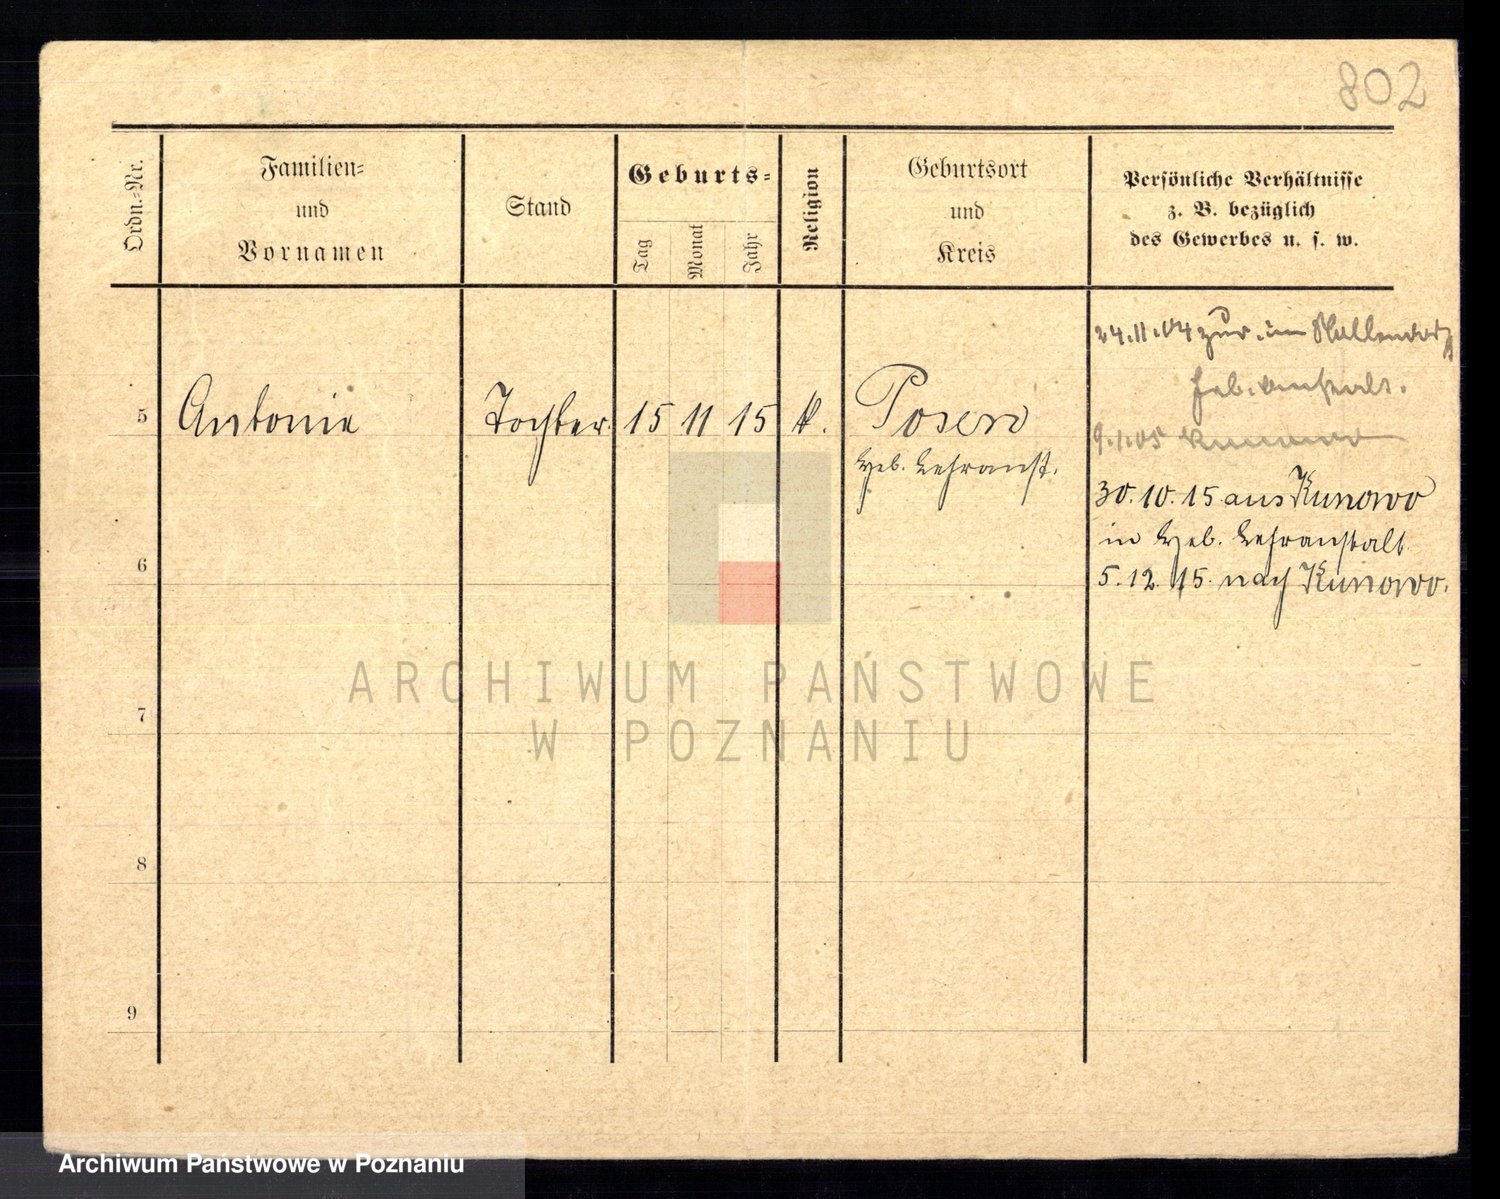 802
Ordn.-Nr.
Familien-
und
Vornamen
Stand
Geburts-
Tag
Monat
Jahr
Religion
Geburtsort
und
Kreis
Persönliche Verhältnisse
z. B. bezüglich
des Gewerbes u. s. w.
24.11.04 zur. in
5 Antonie Tochter 15 11 15 k. Posen
Heb. Lehranst.
9.1.05
30.10.15 aus Kunowo
in Heb. Lehranstalt
5.12.15. nach Kunowo.
6
7
8
9
ARCHIWUM PAŃSTWOWE
W POZNANIU
Archiwum Państwowe w Poznaniu